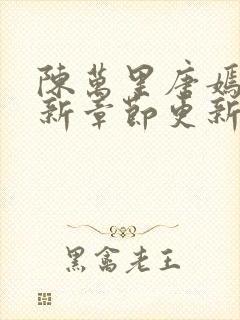 陳萬里唐嫣
新章節更新
黑禽老王